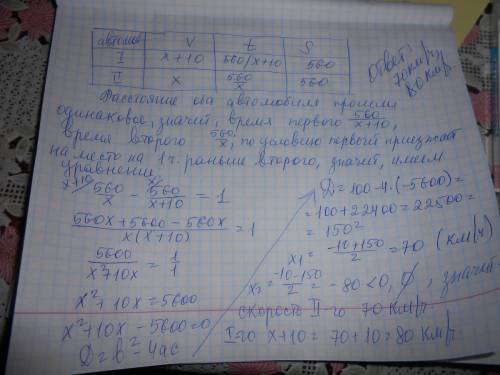 автомоб V t S
I x+10 560/x+10 560
II x 560/x 560
Ответ:
70км/ч,
80 км/ч.
Расстояние оба автомобиля прошли
одинаковое, значит, время первого 560/x+10,
время второго 560/x, по условию первый приезжает
на место на 1ч. раньше второго, значит, имеем
уравнение:
560/x - 560/x+10 = 1
560x+5600-560x/x(x+10) = 1
5600/x²+10x = 1/1
x²+10x=5600
x²+10x-5600=0
D=b²-4ac
D=100-4·(-5600)=
=100+22400=22500=
=150²
x₁= -10+150/2 = 70 (км/ч)
x₂= -10-150/2 = -80<0, ∅, значит
скорость II-го 70 км/ч.
I-го x+10=70+10=80 км/ч